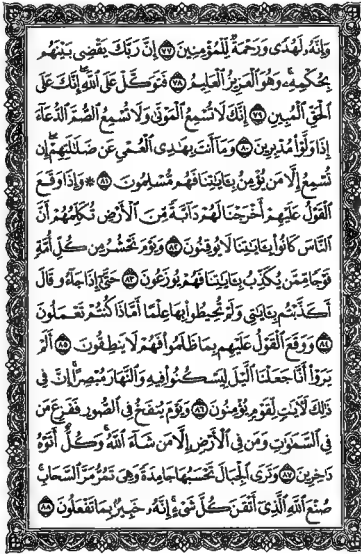 وَإِنَّهُۥ لَهُدًى وَرَحْمَةٌ لِّلْمُؤْمِنِينَ ﴿٧٧﴾ إِنَّ رَبَّكَ يَقْضِى بَيْنَهُم
بِحُكْمِهِۦ وَهُوَ ٱلْعَزِيزُ ٱلْعَلِيمُ ﴿٧٨﴾ فَتَوَكَّلْ عَلَى ٱللَّهِ إِنَّكَ عَلَى
ٱلْحَقِّ ٱلْمُبِينِ ﴿٧٩﴾ إِنَّكَ لَا تُسْمِعُ ٱلْمَوْتَىٰ وَلَا تُسْمِعُ ٱلصُّمَّ ٱلدُّعَآءَ
إِذَا وَلَّوْا۟ مُدْبِرِينَ ﴿٨٠﴾ وَمَآ أَنتَ بِهَٰدِى ٱلْعُمْىِ عَن ضَلَٰلَتِهِمْ إِن
تُسْمِعُ إِلَّا مَن يُؤْمِنُ بِـَٔايَٰتِنَا فَهُم مُّسْلِمُونَ ﴿٨١﴾ ۞ وَإِذَا وَقَعَ
ٱلْقَوْلُ عَلَيْهِمْ أَخْرَجْنَا لَهُمْ دَآبَّةً مِّنَ ٱلْأَرْضِ تُكَلِّمُهُمْ أَنَّ
ٱلنَّاسَ كَانُوا۟ بِـَٔايَٰتِنَا لَا يُوقِنُونَ ﴿٨٢﴾ وَيَوْمَ نَحْشُرُ مِن كُلِّ أُمَّةٍ
فَوْجًا مِّمَّن يُكَذِّبُ بِـَٔايَٰتِنَا فَهُمْ يُوزَعُونَ ﴿٨٣﴾ حَتَّىٰٓ إِذَا جَآءُو قَالَ
أَكَذَّبْتُم بِـَٔايَٰتِى وَلَمْ تُحِيطُوا۟ بِهَا عِلْمًا أَمَّاذَا كُنتُمْ تَعْمَلُونَ
﴿٨٤﴾ وَوَقَعَ ٱلْقَوْلُ عَلَيْهِم بِمَا ظَلَمُوا۟ فَهُمْ لَا يَنطِقُونَ ﴿٨٥﴾ أَلَمْ
يَرَوْا۟ أَنَّا جَعَلْنَا ٱلَّيْلَ لِيَسْكُنُوا۟ فِيهِ وَٱلنَّهَارَ مُبْصِرًا إِنَّ فِى
ذَٰلِكَ لَـَٔايَٰتٍ لِّقَوْمٍ يُؤْمِنُونَ ﴿٨٦﴾ وَيَوْمَ يُنفَخُ فِى ٱلصُّورِ فَفَزِعَ مَن
فِى ٱلسَّمَٰوَٰتِ وَمَن فِى ٱلْأَرْضِ إِلَّا مَن شَآءَ ٱللَّهُ وَكُلٌّ أَتَوْهُ
دَٰخِرِينَ ﴿٨٧﴾ وَتَرَى ٱلْجِبَالَ تَحْسَبُهَا جَامِدَةً وَهِىَ تَمُرُّ مَرَّ ٱلسَّحَابِ
صُنْعَ ٱللَّهِ ٱلَّذِىٓ أَتْقَنَ كُلَّ شَىْءٍ إِنَّهُۥ خَبِيرٌۢ بِمَا تَفْعَلُونَ ﴿٨٨﴾